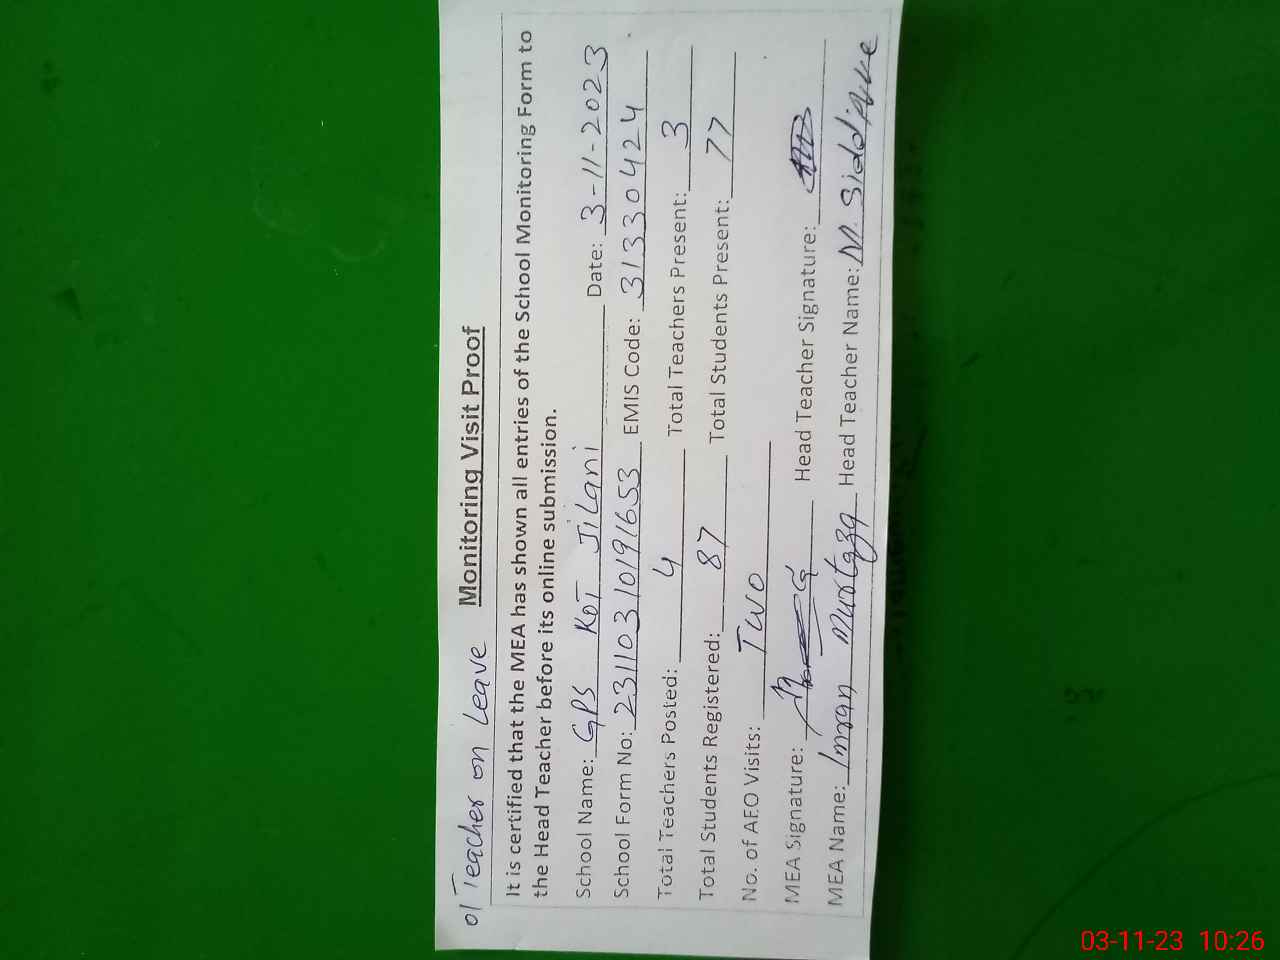 01 Teacher on Leave Monitoring Visit Proof
It is certified that the MEA has shown all entries of the School Monitoring Form to
the Head Teacher before its online submission.
School Name: GPS KOT JiLani Date: 3-11-2023
School Form No: 23110310191653 EMIS Code: 31330424
Total Teachers Posted: 4 Total Teachers Present: 3
Total Students Registered: 87 Total Students Present: 77
No. of AEO Visits: Two
MEA Signature: Head Teacher Signature:
MEA Name: Imran Murtaza Head Teacher Name: M. Siddique
03-11-23 10:26